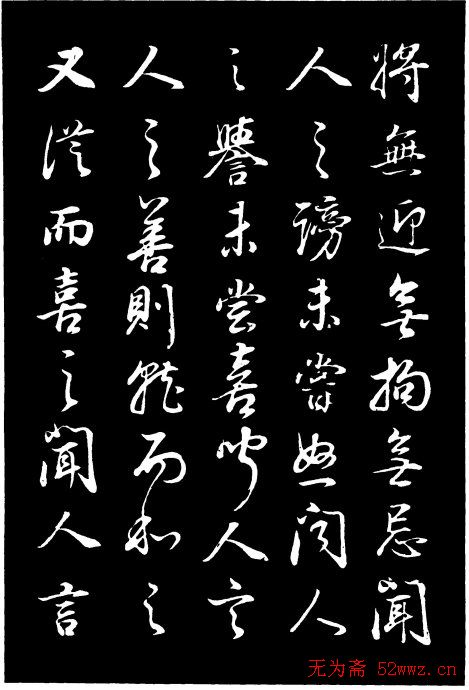 將無迎無拘無忌聞
人之謗未嘗怒聞人
之譽未嘗喜聞人言
人之善則就而和之
又從而喜之聞人言
无为斋 52wwz.cn